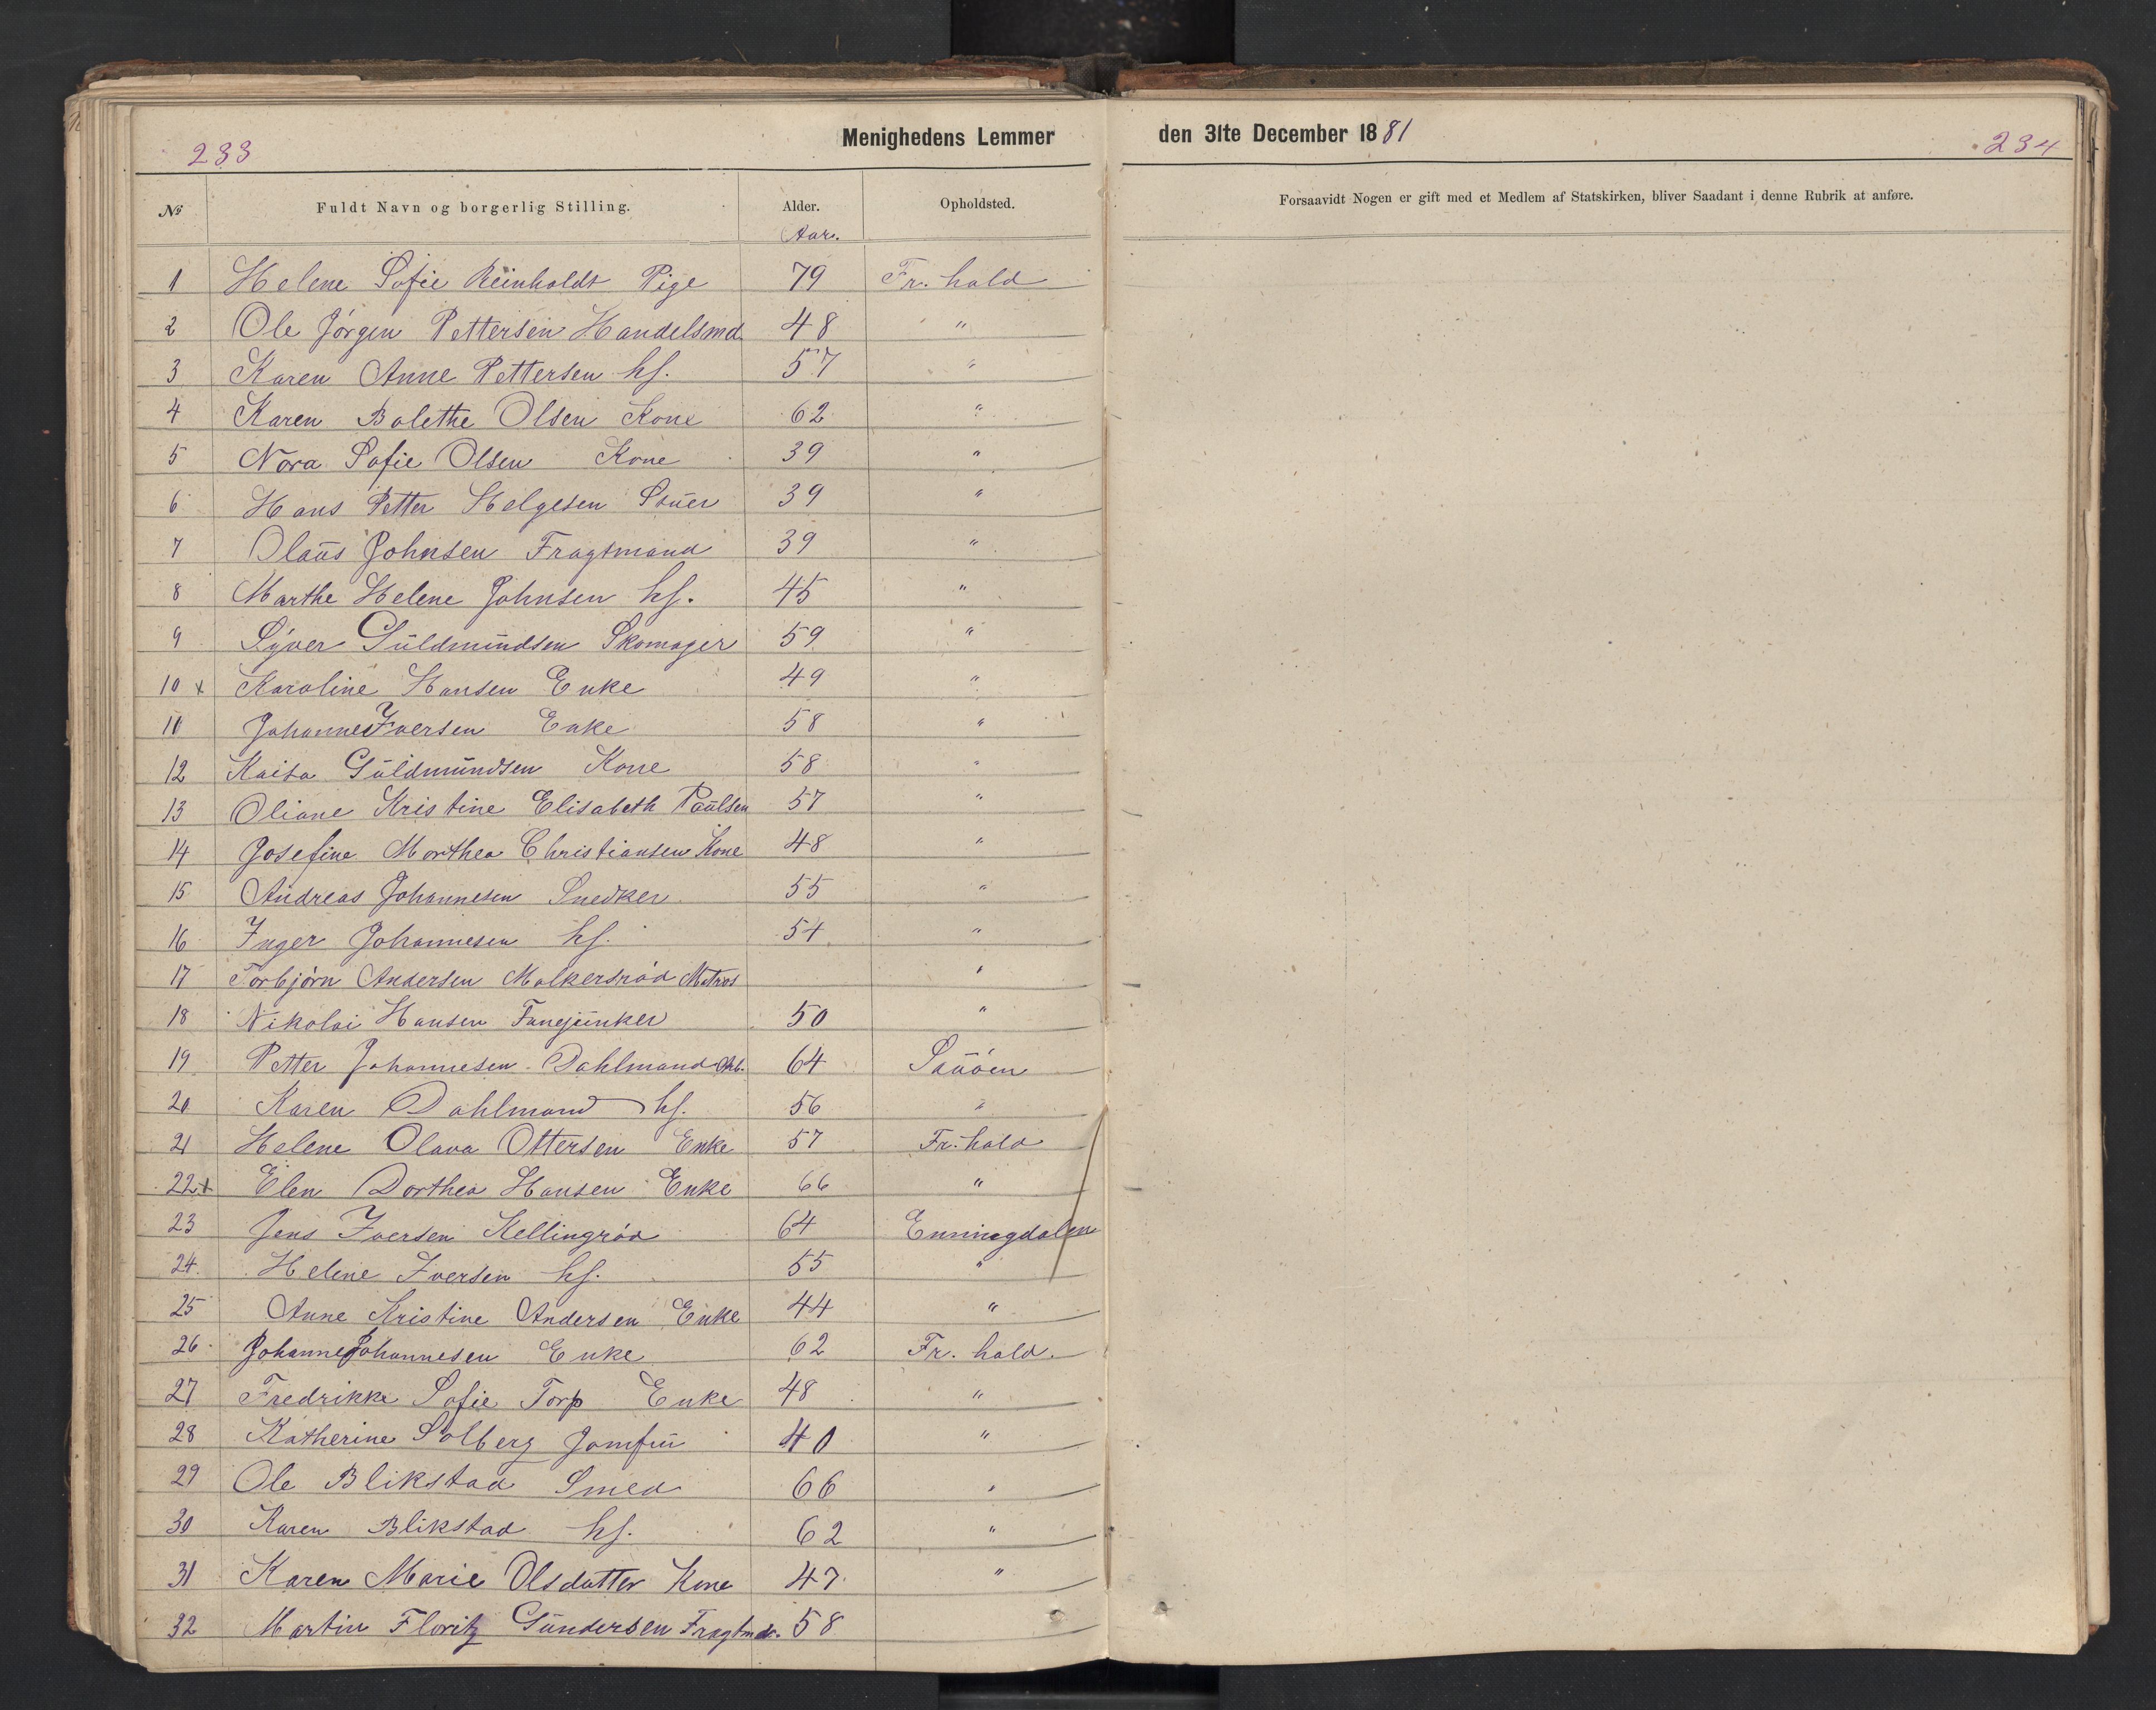 233
Menighedens Lemmer den 31te December 1881
234
№ Fuldt Navn og borgerlig Stilling. Alder. Opholdsted. Forsaavidt Nogen er gift med et Medlem af Statskirken, bliver Saadant i denne Rubrik at anføre.
Aar.
1 Helene Sofie Reinholdt Pige 79 Fr. hald
2 Ole Jörgen Pettersen Handelsmd. 48 "
3 Karen Anne Pettersen hf. 57 "
4 Karen Bolethe Olsen Kone 62 "
5 Nora Sofie Olsen Kone 39 "
6 Hans Petter Helgesen Stuer 39 "
7 Olaus Johnsen Fragtmand 39 "
8 Marthe Helene Johnsen hf. 45 "
9 Syver Guldmundsen Skomager 59 "
10 x Karoline Hansen Enke 49 "
11 Johanne Iversen Enke 58 "
12 Kaisa Guldmundsen Kone 58 "
13 Oliane Kristine Elisabeth Paulsen 57 "
14 Josefine Morthea Christiansen Kone 48 "
15 Andreas Johannesen Snedker 55 "
16 Inger Johannesen hf. 54 "
17 Torbjörn Andersen Molkersröd Matros "
18 Nikolai Hansen Fanejunker 50 "
19 Petter Johannesen Dahlmand Arb. 64 Sauöen
20 Karen Dahlmand hf. 56 "
21 Helene Olava Ottersen Enke 57 Fr. hald
22 x Elen Dorthea Hansen Enke 66 "
23 Jens Iversen Kellingröd 64 Enningdalen
24 Helene Iversen hf. 55 "
25 Anne Kristine Andersen Enke 44 "
26 Johanne Johannesen Enke 62 Fr. hald.
27 Fredrikke Sofie Torp Enke 48 "
28 Katherine Solberg Jomfru 40 "
29 Ole Blikstad Smed 66 "
30 Karen Blikstad hf. 62 "
31 Karen Marie Olsdatter Kone 47 "
32 Martin Floritz Gundersen Fragtmd. 58